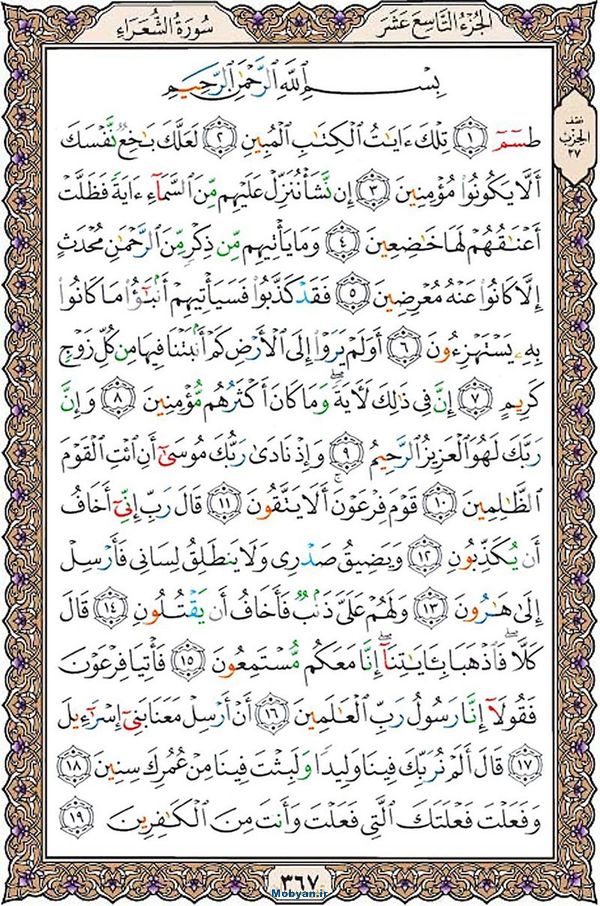 الجزء التاسع عشر
سورة الشعراء
بِسْمِ اللَّهِ الرَّحْمَٰنِ الرَّحِيمِ
نصف
الحزب
٣٧
طسٓمٓ ١ تِلْكَ ءَايَٰتُ الْكِتَٰبِ الْمُبِينِ ٢ لَعَلَّكَ بَٰخِعٌ نَّفْسَكَ
أَلَّا يَكُونُوا مُؤْمِنِينَ ٣ إِن نَّشَأْ نُنَزِّلْ عَلَيْهِم مِّنَ السَّمَآءِ ءَايَةً فَظَلَّتْ
أَعْنَٰقُهُمْ لَهَا خَٰضِعِينَ ٤ وَمَا يَأْتِيهِم مِّن ذِكْرٍ مِّنَ الرَّحْمَٰنِ مُحْدَثٍ
إِلَّا كَانُوا عَنْهُ مُعْرِضِينَ ٥ فَقَدْ كَذَّبُوا فَسَيَأْتِيهِمْ أَنۢبَٰٓؤُا مَا كَانُوا
بِهِۦ يَسْتَهْزِءُونَ ٦ أَوَلَمْ يَرَوْا إِلَى الْأَرْضِ كَمْ أَنۢبَتْنَا فِيهَا مِن كُلِّ زَوْجٍ
كَرِيمٍ ٧ إِنَّ فِي ذَٰلِكَ لَءَايَةً ۖ وَمَا كَانَ أَكْثَرُهُم مُّؤْمِنِينَ ٨ وَإِنَّ
رَبَّكَ لَهُوَ الْعَزِيزُ الرَّحِيمُ ٩ وَإِذْ نَادَىٰ رَبُّكَ مُوسَىٰٓ أَنِ ائْتِ الْقَوْمَ
الظَّٰلِمِينَ ١٠ قَوْمَ فِرْعَوْنَ ۚ أَلَا يَتَّقُونَ ١١ قَالَ رَبِّ إِنِّيٓ أَخَافُ
أَن يُكَذِّبُونِ ١٢ وَيَضِيقُ صَدْرِي وَلَا يَنطَلِقُ لِسَانِي فَأَرْسِلْ
إِلَىٰ هَٰرُونَ ١٣ وَلَهُمْ عَلَيَّ ذَنۢبٌ فَأَخَافُ أَن يَقْتُلُونِ ١٤ قَالَ
كَلَّا ۖ فَاذْهَبَا بِـَٔايَٰتِنَآ ۖ إِنَّا مَعَكُم مُّسْتَمِعُونَ ١٥ فَأْتِيَا فِرْعَوْنَ
فَقُولَآ إِنَّا رَسُولُ رَبِّ الْعَٰلَمِينَ ١٦ أَنْ أَرْسِلْ مَعَنَا بَنِيٓ إِسْرَٰٓءِيلَ
١٧ قَالَ أَلَمْ نُرَبِّكَ فِينَا وَلِيدًا وَلَبِثْتَ فِينَا مِنْ عُمُرِكَ سِنِينَ ١٨
وَفَعَلْتَ فَعْلَتَكَ الَّتِي فَعَلْتَ وَأَنتَ مِنَ الْكَٰفِرِينَ ١٩
٣٦٧
Mobyan.ir